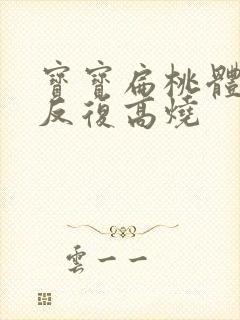 寶寶扁桃體
反復高燒
雲一一